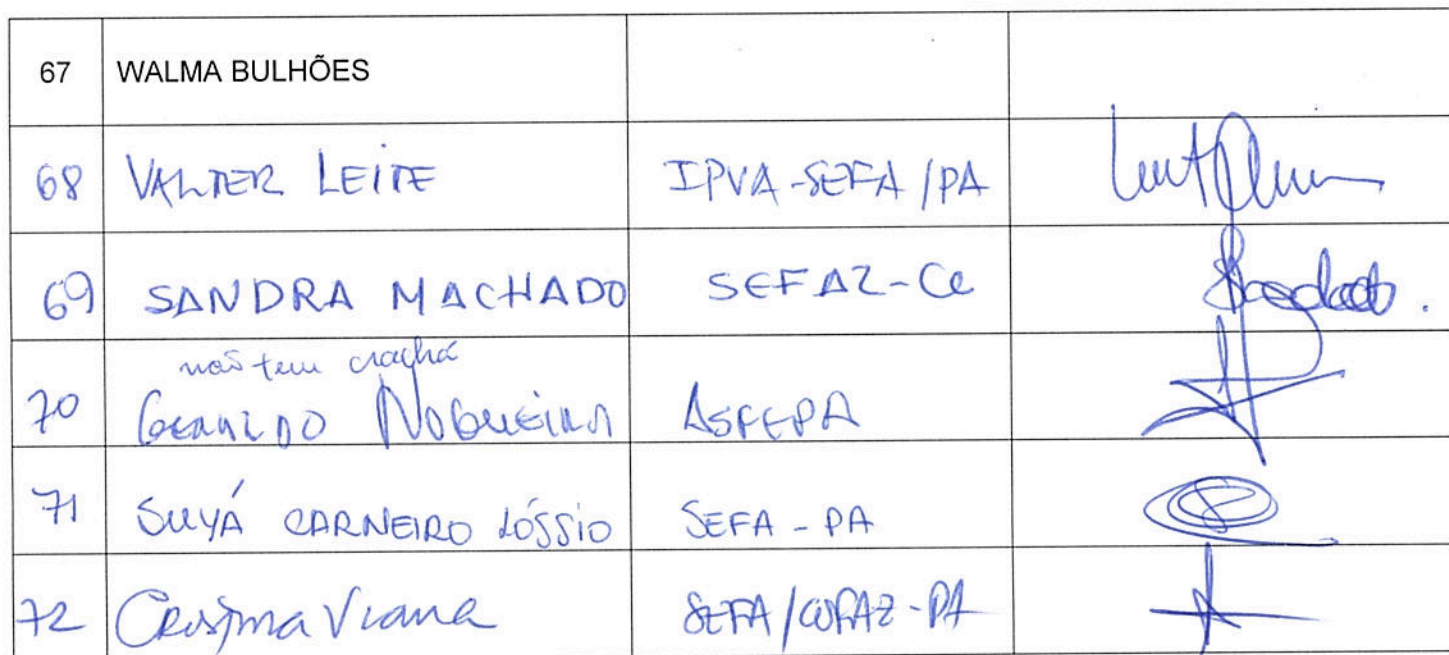 67 WALMA BULHÕES
68 VALTER LEITE IPVA-SEFA/PA
69 SANDRA MACHADO SEFAZ-CE
não tem crachá
70 GERALDO NOGUEIRA ASFEPA
71 SUYÁ CARNEIRO LÓSSIO SEFA-PA
72 Cristina Viana SEFA/COFAZ-PA